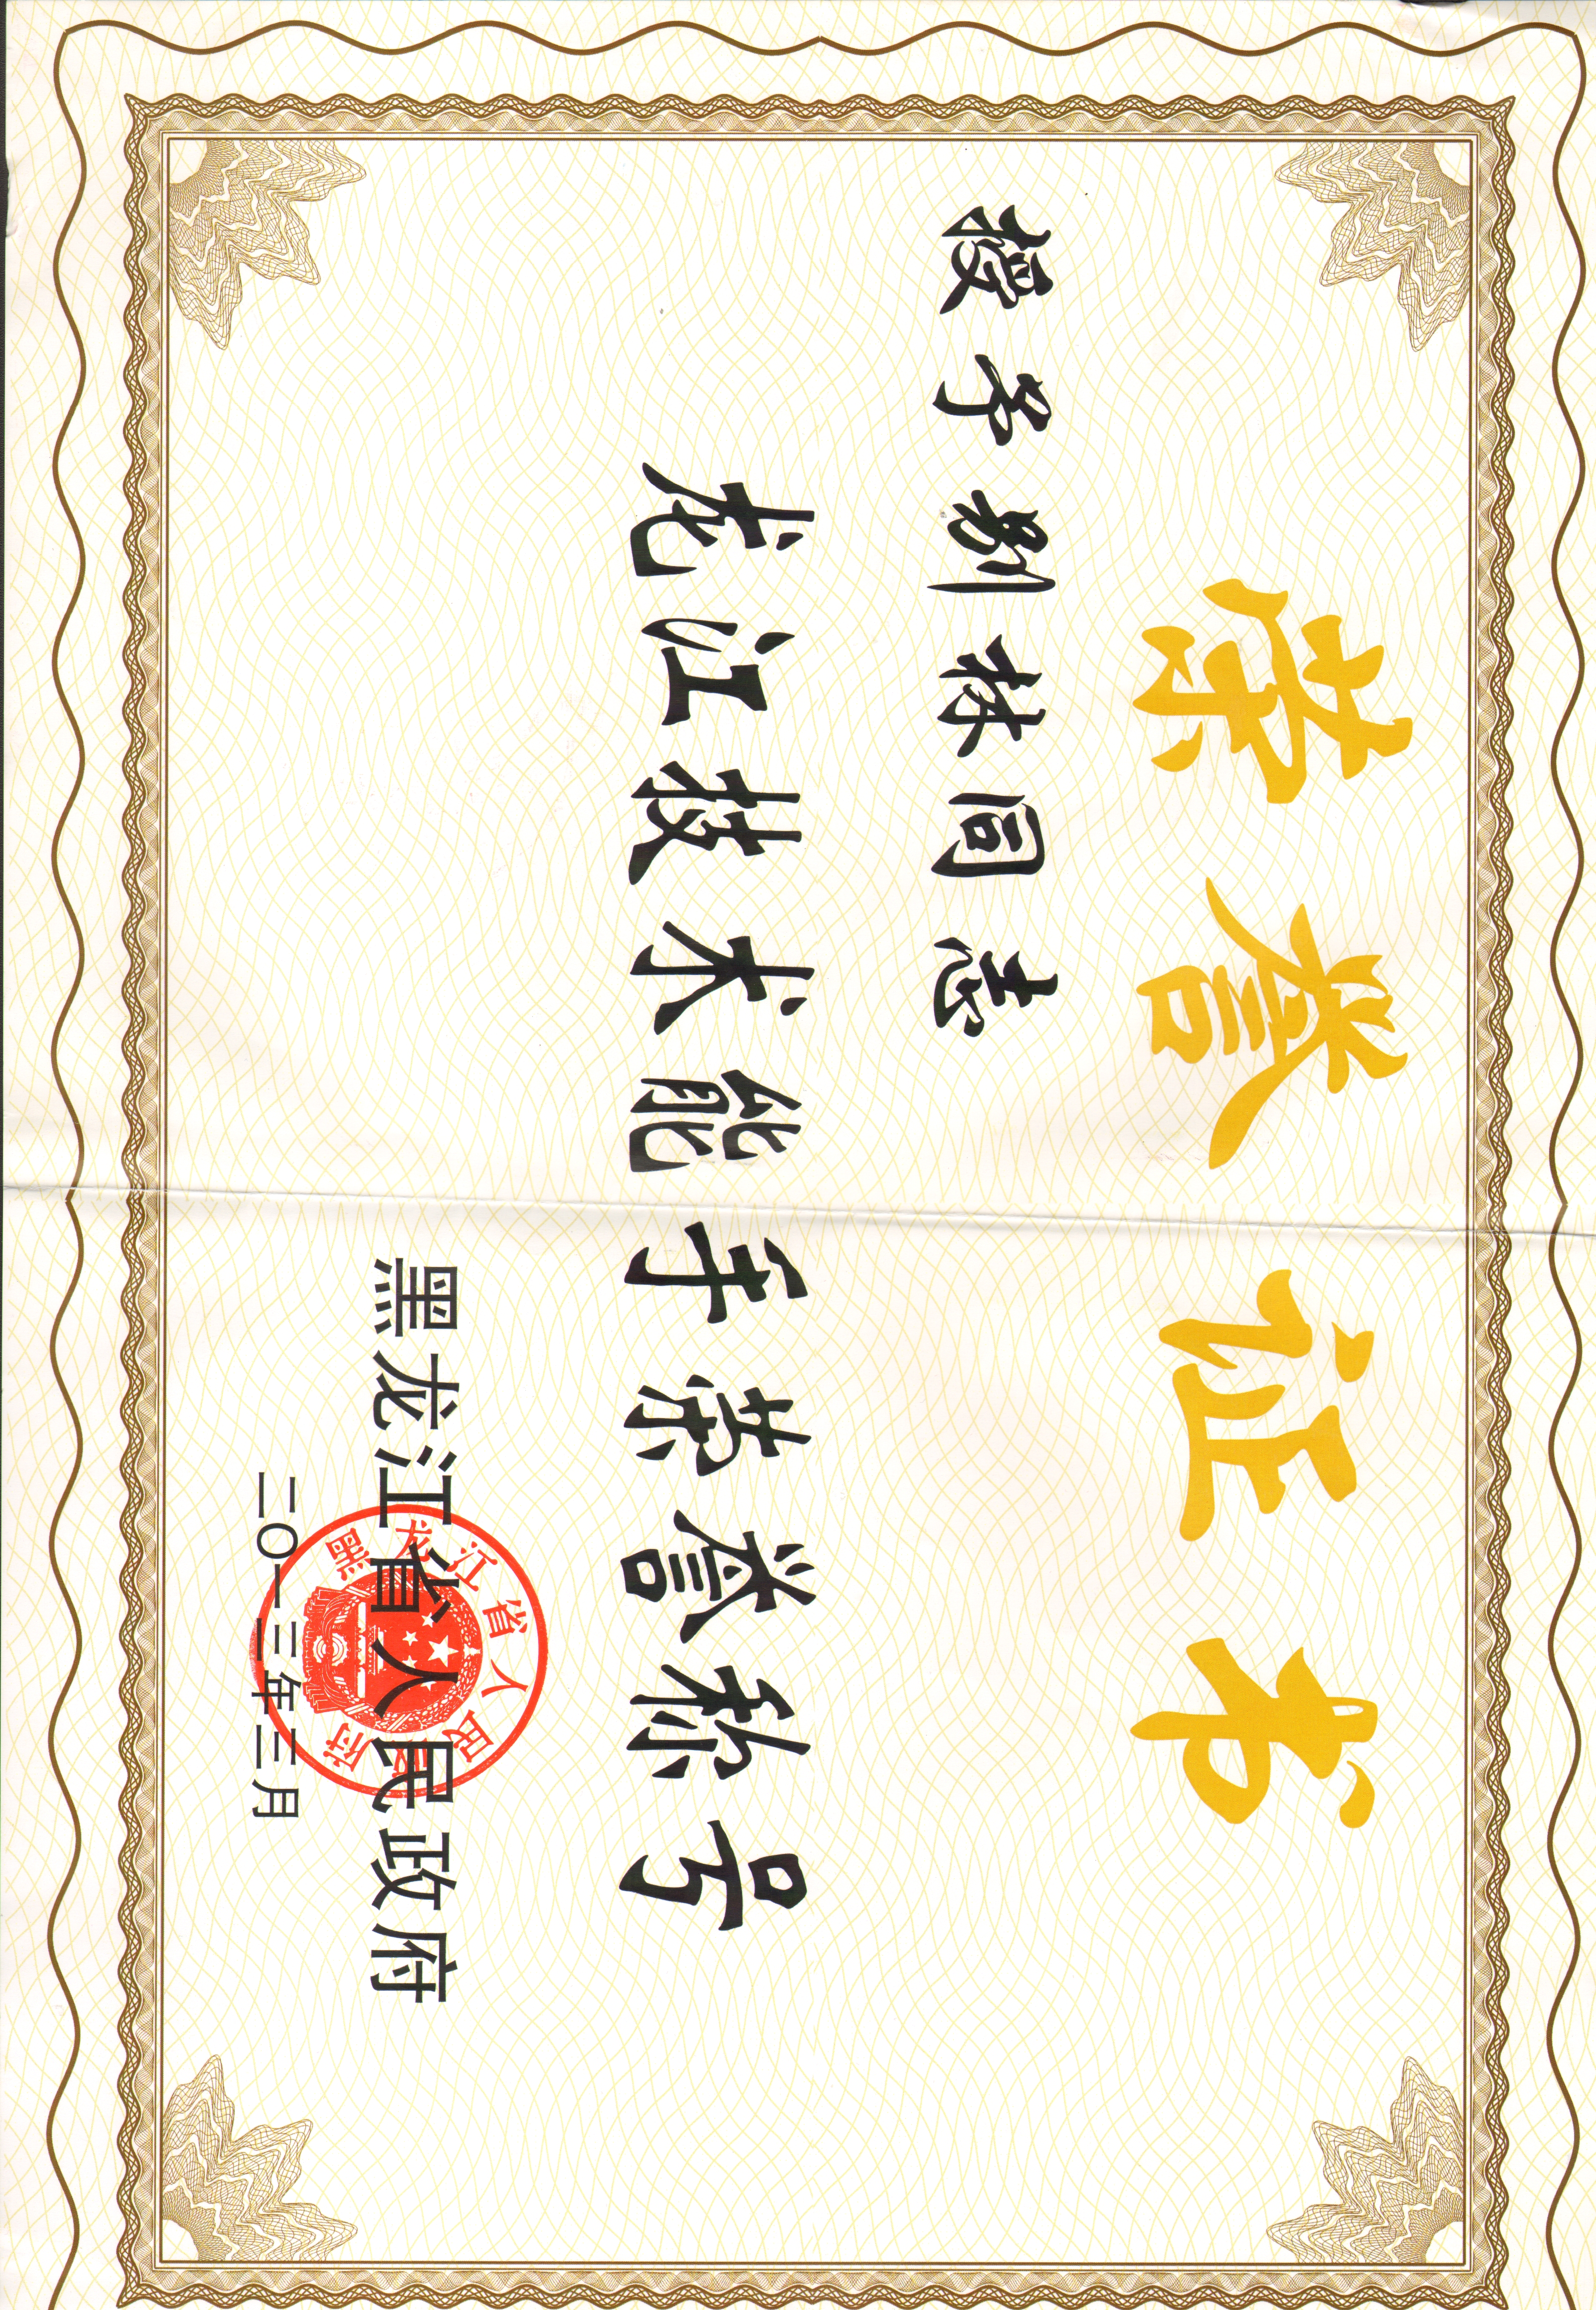 荣誉证书
授予别林同志
龙江技术能手荣誉称号
黑龙江省人民政府
二〇一三年三月
黑龙江省人民政府